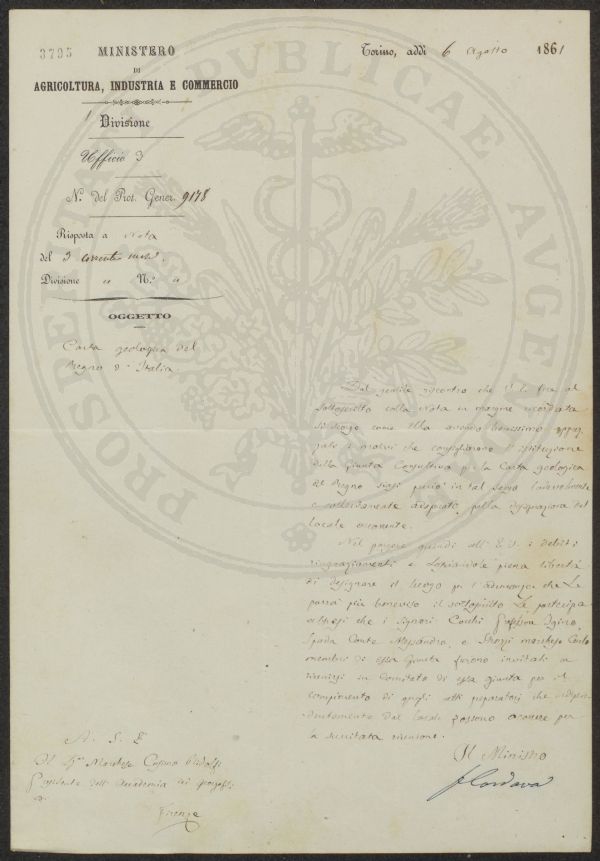 3795 MINISTERO
DI
AGRICOLTURA, INDUSTRIA E COMMERCIO
Divisione
Ufficio 3
N.° del Prot. Gener. 9178
Risposta a Nota
del 3 corrente mese
Divisione " N.° "
OGGETTO
Carta geologica del
Regno d'Italia
Torino, addì 6 Agosto 1861
Dal gentile riscontro che
sottoscritto colla Nota in margine ricordata
si scorge come Ella avendo benissimo
i motivi che consigliarono l'istituzione
della Giunta Consultiva p. la Carta geologica
del Regno siasi in tal senso
e adoperato pella del
locale occorrente.
Nel porgere quindi all' E.V. i debiti
ringraziamenti e lasciandole piena libertà
di designare il luogo per l'adunanza che Le
parrà più il sottoscritto Le partecipa
altresì che i Signori Cocchi Professore Igino,
Spada Conte Alessandro, e Strozzi marchese Carlo
membri di essa Giunta furono invitati a
riunirsi in Comitato di essa giunta per il
compimento di quegli atti preparatori che indipen-
dentemente dal locale possono occorrere per
la suscitata riunione.
Il Ministro
Cordova
A. S. E
Il Marchese Cosimo Ridolfi
Presidente dell'Accademia dei Georgofili
Firenze
PROSPERITATI PVBLICAE AVGENDAE